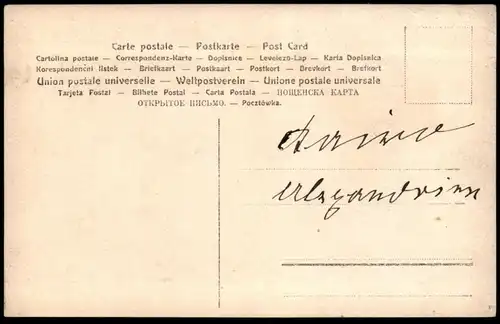 Carte postale — Postkarte — Post Card
Cartolina postale — Correspondenz-Karte — Dopisnice — Levelezo-Lap — Karta Dopisnica
Korespondenční lístek — Briefkaart — Postkaart — Postkort — Brevkort — Brefkort
Union postale universelle — Weltpostverein — Unione postale universale
Tarjeta Postal — Bilhete Postal — Carta Postala — ВОЩЕНСКА КАРТА
ОТКРЫТОЕ ПИСЬМО. — Pocztówka.
Alexandrine